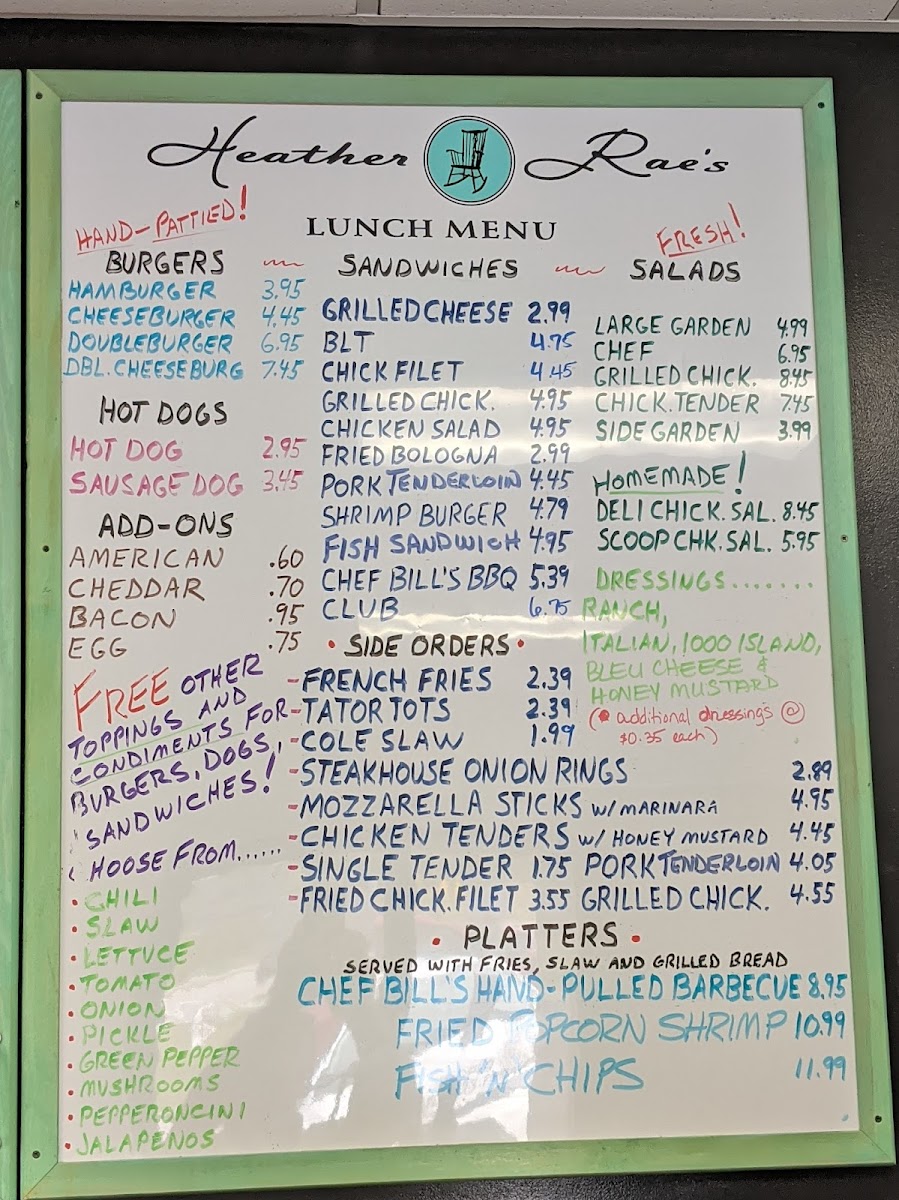 Heather Rae's
LUNCH MENU
HAND-PATTIED!
BURGERS
HAMBURGER 3.95
CHEESEBURGER 4.45
DOUBLEBURGER 6.95
DBL. CHEESEBURG 7.45
HOT DOGS
HOT DOG 2.95
SAUSAGE DOG 3.45
ADD-ONS
AMERICAN .60
CHEDDAR .70
BACON .95
EGG .75
FREE OTHER
TOPPINGS AND
CONDIMENTS FOR
BURGERS, DOGS,
SANDWICHES!
CHOOSE FROM......
• CHILI
• SLAW
• LETTUCE
• TOMATO
• ONION
• PICKLE
• GREEN PEPPER
• MUSHROOMS
• PEPPERONCINI
• JALAPENOS
SANDWICHES
GRILLED CHEESE 2.99
BLT 4.75
CHICK FILET 4.45
GRILLED CHICK. 4.95
CHICKEN SALAD 4.95
FRIED BOLOGNA 2.99
PORK TENDERLOIN 4.45
SHRIMP BURGER 4.79
FISH SANDWICH 4.95
CHEF BILL'S BBQ 5.39
CLUB 6.75
FRESH!
SALADS
LARGE GARDEN 4.99
CHEF 6.95
GRILLED CHICK. 8.45
CHICK. TENDER 7.45
SIDE GARDEN 3.99
HOMEMADE!
DELI CHICK. SAL. 8.45
SCOOP CHK. SAL. 5.95
DRESSINGS.......
RANCH,
ITALIAN, 1000 ISLAND,
BLEU CHEESE &
HONEY MUSTARD
(* additional dressings @
$0.35 each)
• SIDE ORDERS •
-FRENCH FRIES 2.39
-TATOR TOTS 2.39
-COLE SLAW 1.99
-STEAKHOUSE ONION RINGS 2.89
-MOZZARELLA STICKS W/MARINARA 4.95
-CHICKEN TENDERS W/ HONEY MUSTARD 4.45
-SINGLE TENDER 1.75 PORK TENDERLOIN 4.05
-FRIED CHICK. FILET 3.55 GRILLED CHICK. 4.55
• PLATTERS •
SERVED WITH FRIES, SLAW AND GRILLED BREAD
CHEF BILL'S HAND-PULLED BARBECUE 8.95
FRIED POPCORN SHRIMP 10.99
FISH 'N' CHIPS 11.99